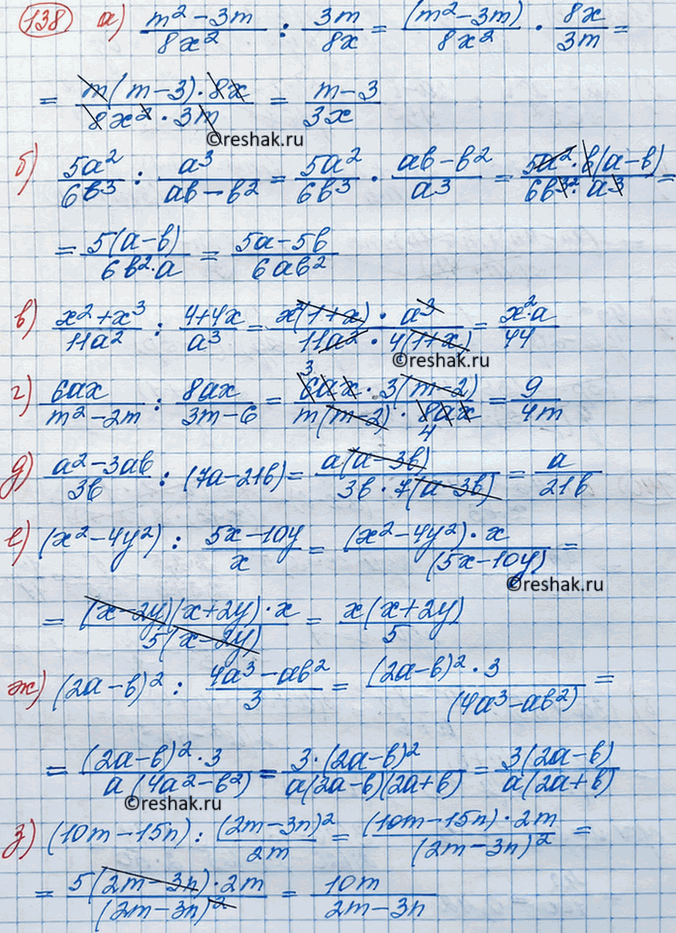 138 а) (m² − 3m)/(8x²) : 3m/8x = (m² − 3m)/(8x²) · 8x/3m =
= (m(m − 3) · 8x)/(8x² · 3m) = (m − 3)/3x
©reshak.ru
б) 5a²/6b³ : a³/(ab − b²) = 5a²/6b³ · (ab − b²)/a³ = (5a² · b(a − b))/(6b³² · a³) =
= 5(a − b)/(6b² · a) = (5a − 5b)/6ab²
в) (x² + x³)/11a² : (4 + 4x)/a³ = (x²(1 + x) · a³)/(11a² · 4(1 + x)) = x² · a/44
©reshak.ru
г) 6ax/(m² − 2m) : 8ax/(3m − 6) = (³6ax · 3(m − 2))/(m(m − 2) · 8ax ₄) = 9/4m
д) (a² − 3ab)/3b : (7a − 21b) = a(a − 3b)/(3b · 7(a − 3b)) = a/21b
е) (x² − 4y²) : (5x − 10y)/x = ((x² − 4y²) · x)/(5x − 10y) =
©reshak.ru
= ((x − 2y)(x + 2y) · x)/(5(x − 2y)) = x(x + 2y)/5
ж) (2a − b)² : (4a³ − ab²)/3 = ((2a − b)² · 3)/(4a³ − ab²) =
= ((2a − b)² · 3)/(a(4a² − b²)) = (3 · (2a − b)²)/(a(2a − b)(2a + b)) = 3(2a − b)/(a(2a + b))
©reshak.ru
з) (10m − 15n) : (2m − 3n)²/2m = ((10m − 15n) · 2m)/(2m − 3n)² =
= (5(2m − 3n) · 2m)/(2m − 3n)² = 10m/(2m − 3n)